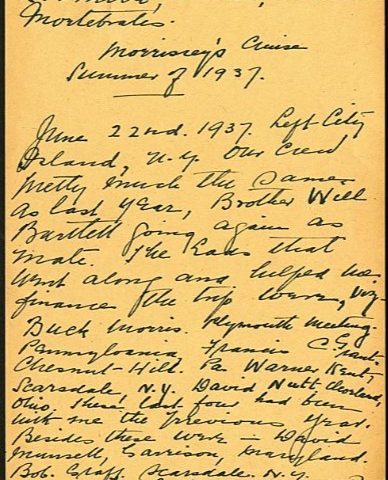 Mortebrates.
Morrissey's Cruise
Summer of 1937.
June 22nd. 1937. Left City
Island, N.Y. Our Crew
Pretty much the same
as last year, Brother Will
Bartlett going again as
mate. The Lads that
went along and helped me
finance the trip were, viz
Buck Morris. Plymouth Meeting.
Pennsylvania, Francis C. Grant.
Chesnut-Hill. Pa Warner Kent,
Scarsdale, N.Y. David Nutt Cleveland,
Ohio. These last four had been
with me the previous year.
Besides these were - David
Munsell, Garrison, Maryland.
Bob. Graff, Scarsdale. N.Y.